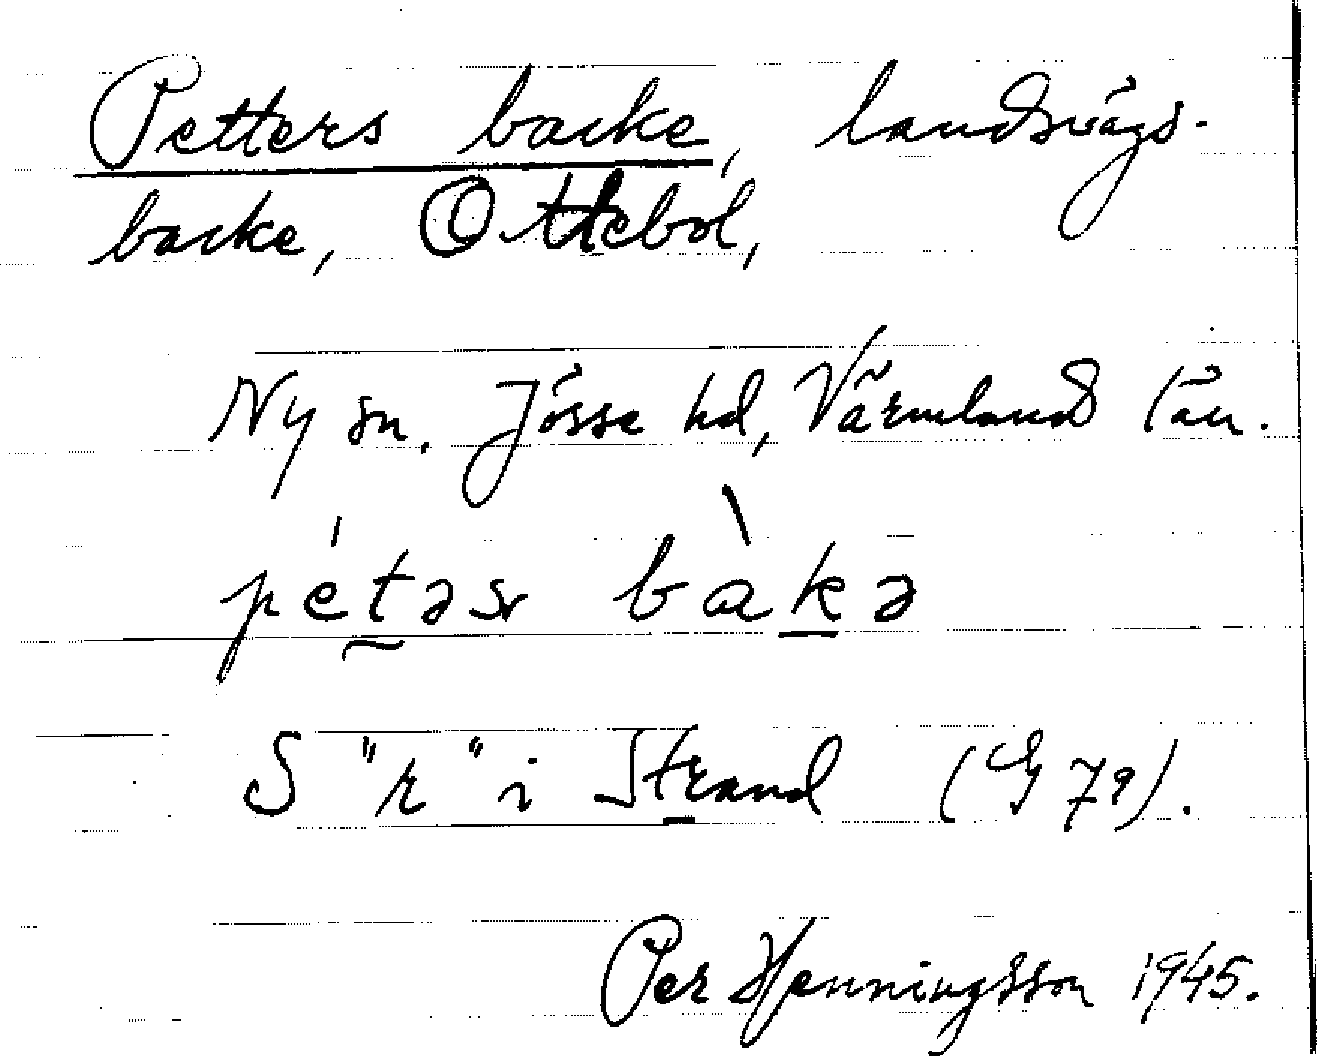 Petters backe, landsvägs-
backe, Ottebol,
Ny sn. Jösse hd, Värmland län.
pétəsr bàkə
S "r" i Strand (G 79).
Per Henningsson 1945.